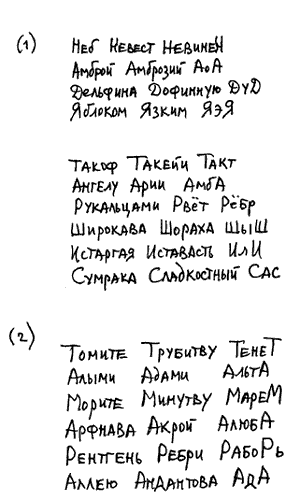 (1) Неб Невест НевиненН
Амброй Амброзий АоА
Дельфина Дофинную ДуД
Яблоком Язким ЯэЯ
ТАКОФ ТАКЕЙИ ТАКТ
АНГЕЛУ АРИИ АМБА
РУКАЛЬЦАМИ РВЁТ РЁБР
ШИРОКАВА ШОРАХА ШЫШ
ИСТАРГАЯ ИСТАВАСТЬ ИЛИ
СУМРАКА СЛАДКОСТНЫЙ САС
(2) ТОМИТЕ ТРУБИТВУ ТЕНЕТ
АЛЫМИ АДАМИ АЛЬТА
МОРИТЕ МИНУТВУ МАРЕМ
АРФНАВА АКРОЙ АЛЮБА
РЕНТГЕНЬ РЕБРИ РАБОРЬ
АЛЛЕЮ АНДАНТОВА АДА